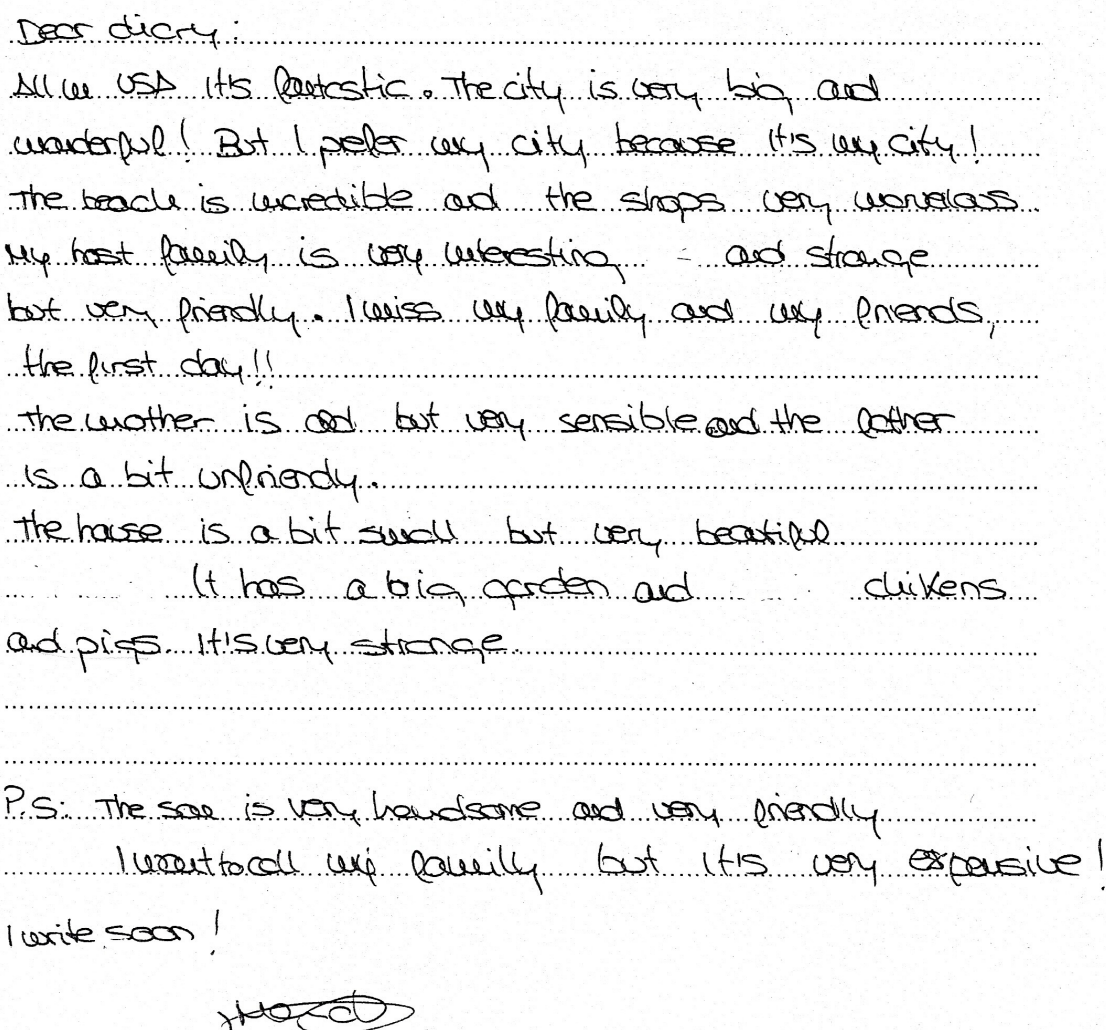 Dear diary:
All in USA it's fantastic. The city is very big and
wonderful! But I prefer my city because it's my city!
The beach is incredible and the shops very
My host family is very interesting - and strange
but very friendly. I miss my family and my friends,
the first day!!
The mother is old but very sensible and the father
is a bit unfriendy.
The house is a bit small but very beatiful
It has a big garden and chikens
and pigs. It's very strange.
P.S: The son is very handsome and very friendly
I want to call my family but it's very expensive!
I write soon!